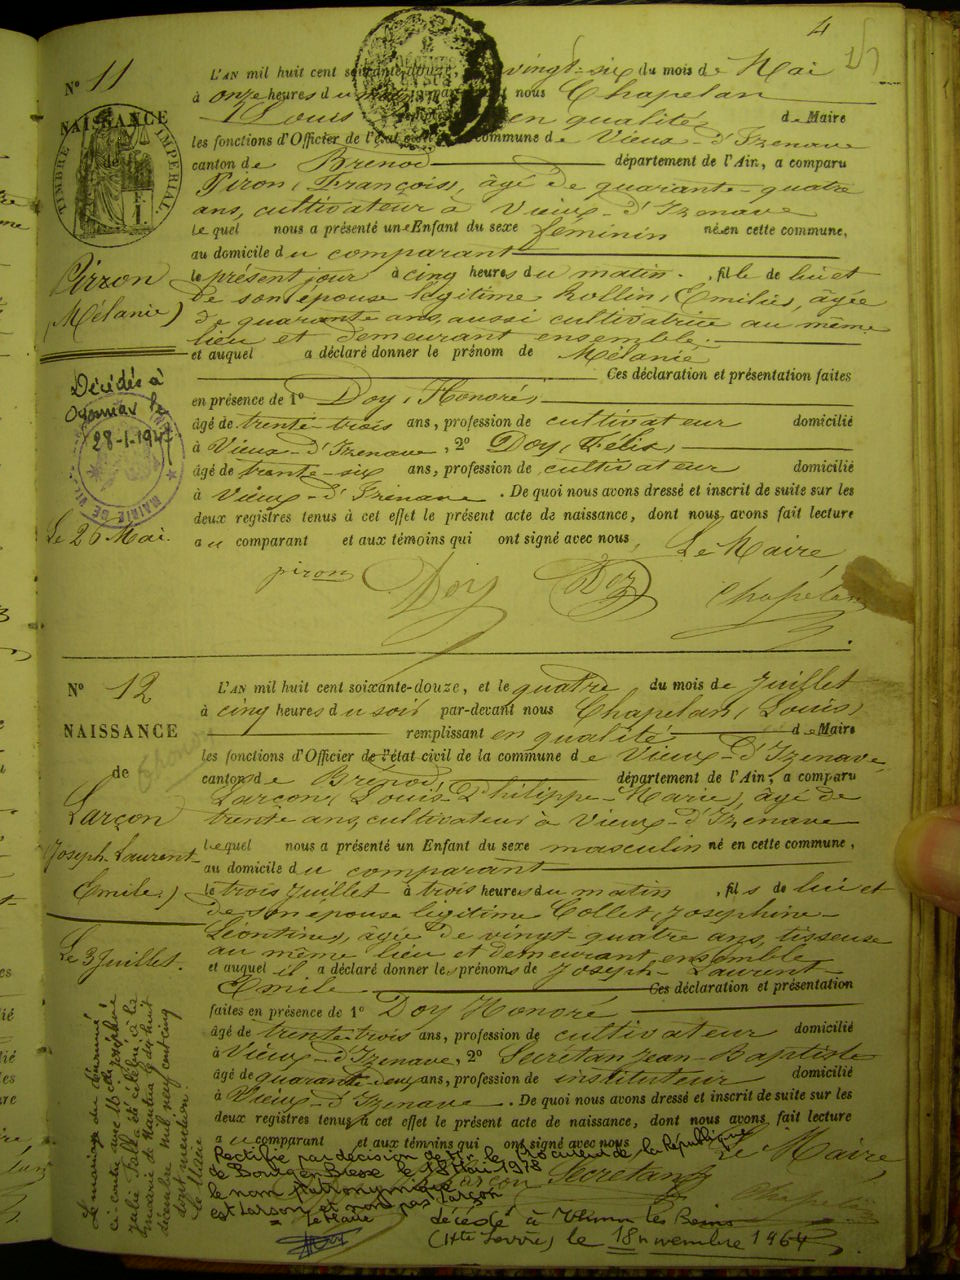 4
N° 11
L'AN mil huit cent soixante-douze, vingt-six du mois de Mai
à onze heures du nous Chapelan
Louis en qualité de Maire
les fonctions d'Officier de l'état commune de Vieux-d'Izenave
canton de Brenod département de l'Ain, a comparu
Piron (François), âgé de quarante-quatre
ans, cultivateur à Vieux-d'Izenave
lequel nous a présenté un Enfant du sexe féminin né en cette commune,
au domicile du comparant
le présent jour à cinq heures du matin, fille de lui et
de son épouse légitime Rollin (Emilie), âgée
de quarante ans, aussi cultivatrice au même
lieu et demeurant ensemble.
et auquel a déclaré donner le prénom de Mélanie
Ces déclaration et présentation faites
en présence de 1° Doy (Honoré)
âgé de trente-trois ans, profession de cultivateur domicilié
à Vieux-d'Izenave, 2° Doy (Félix)
âgé de trente-six ans, profession de cultivateur domicilié
à Vieux-d'Izenave. De quoi nous avons dressé et inscrit de suite sur les
deux registres tenus à cet effet le présent acte de naissance, dont nous avons fait lecture
au comparant et aux témoins qui ont signé avec nous, Le Maire
piron Doy Doy Chapelan
NAISSANCE
de
TIMBRE IMPERIAL
Pirron
(Mélanie)
Décédée à
Oyonnax le
28-1-1947
MAIRIE DE
Le 26 Mai.
N° 12
NAISSANCE
de
Larçon
(Joseph-Laurent-
Emile)
Le 3 Juillet.
L'AN mil huit cent soixante-douze, et le quatre du mois de Juillet
à cinq heures du soir par-devant nous Chapelan (Louis)
remplissant en qualité de Maire
les fonctions d'Officier de l'état civil de la commune de Vieux-d'Izenave,
canton de Brénod, département de l'Ain, a comparu
Larçon (Louis-Philippe-Marie), âgé de
trente ans, cultivateur à Vieux-d'Izenave
Lequel nous a présenté un Enfant du sexe masculin né en cette commune,
au domicile du comparant
le trois Juillet à trois heures du matin, fils de lui et
de son épouse légitime Collet (Joséphine-
Léontine), âgée de vingt-quatre ans, tisseuse
au même lieu et demeurant ensemble
et auquel il a déclaré donner les prénoms de Joseph-Laurent-
Emile. Ces déclaration et présentation
faites en présence de 1° Doy Honoré
âgé de trente-trois ans, profession de cultivateur domicilié
à Vieux-d'Izenave, 2° Secrétan Jean-Baptiste
âgé de quarante-deux ans, profession de instituteur domicilié
à Vieux-d'Izenave. De quoi nous avons dressé et inscrit de suite sur les
deux registres tenus à cet effet le présent acte de naissance, dont nous avons fait lecture
au comparant et aux témoins qui ont signé avec nous Le Maire
Larçon Secretan Chapelan
Rectifié par décision de Mr le Procureur de la République
de Bourg en Bresse le 18 Mai 1978
le nom patronymique
est Larson et non pas Larçon
le Maire
décédé à Thonon les Bains
(Hte Savoie) le 18 novembre 1964
Le mariage du dénommé
ci-contre avec Joséphine
Julie a été célébré à la
mairie de Nantua le dix huit
décembre mil neuf cent cinq
dont mention.
Le Maire